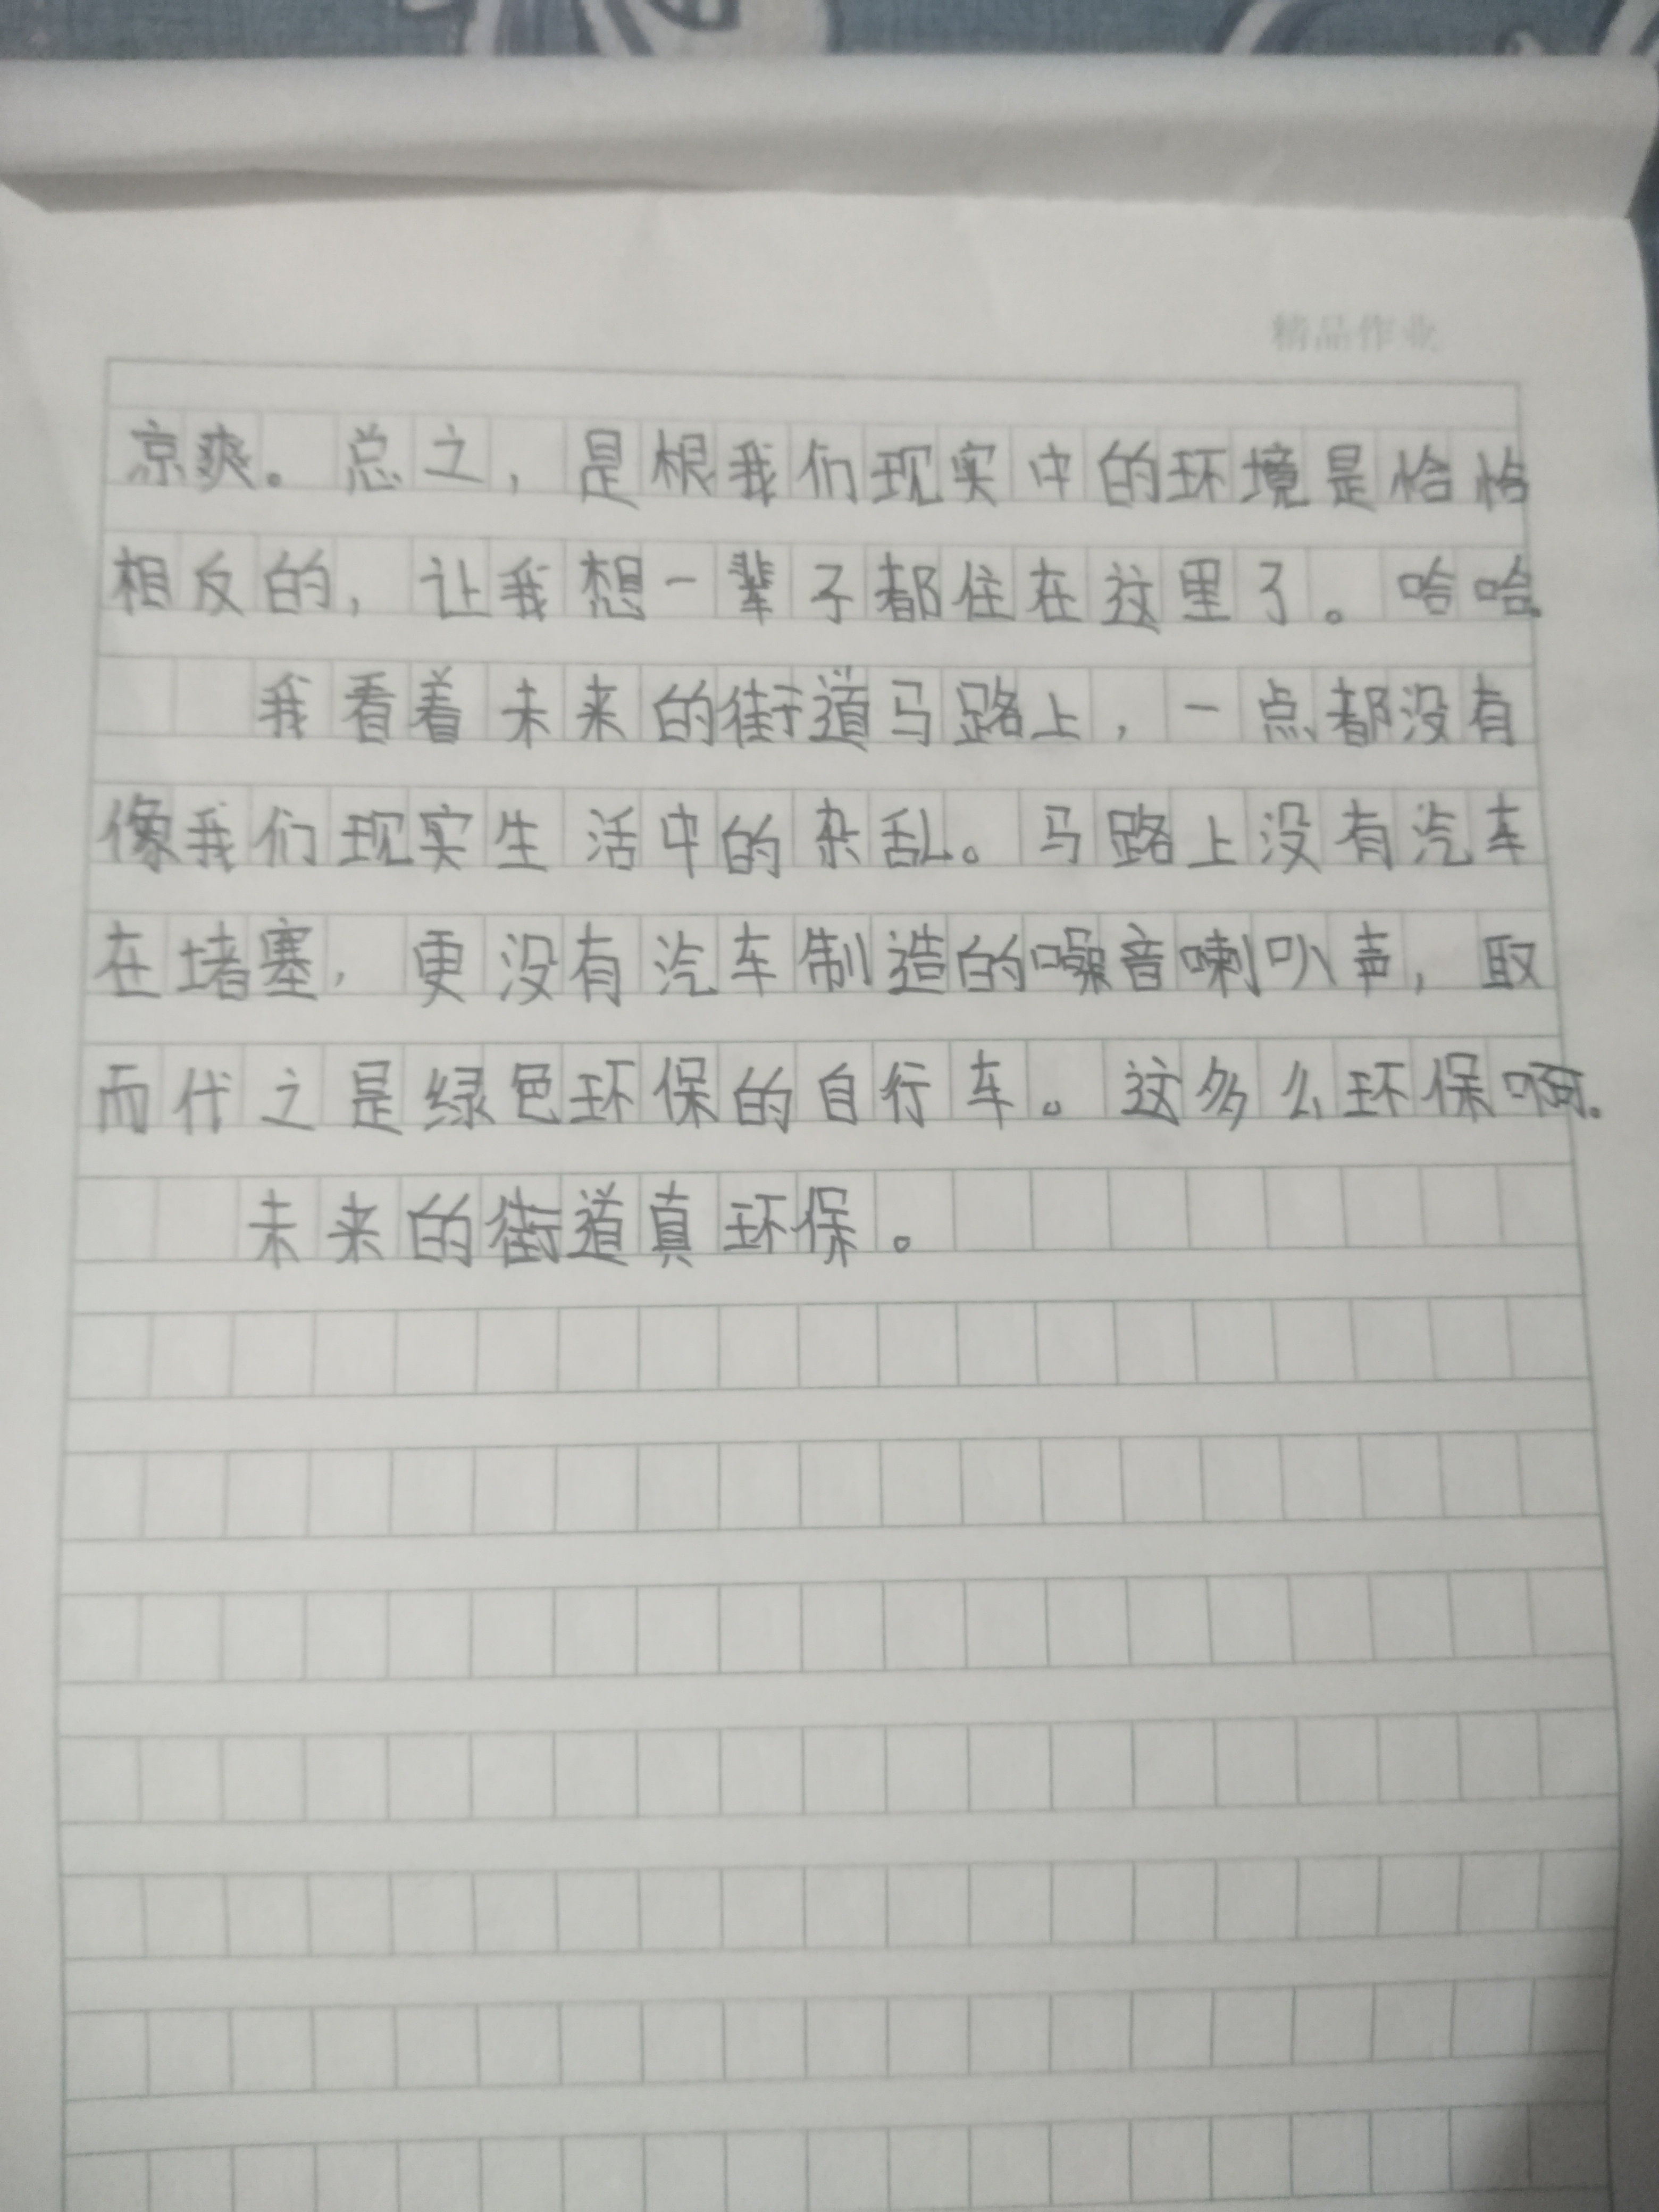 精品作业
凉爽。总之，是根我们现实中的环境是恰恰
相反的，让我想一辈子都住在这里了。哈哈。
我看着未来的街道马路上，一点都没有
像我们现实生活中的杂乱。马路上没有汽车
在堵塞，更没有汽车制造的噪音喇叭声，取
而代之是绿色环保的自行车。这多么环保啊。
未来的街道真环保。